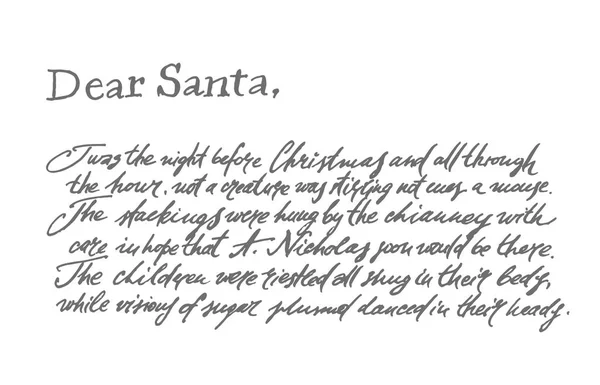 Dear Santa,
Twas the night before Christmas and all through
the hour, not a creature was stirring not even a mouse.
The stockings were hung by the chianney with
care in hope that St. Nicholas soon would be there.
The children were nestled all snug in their beds,
while visions of sugar plumed danced in their heads.